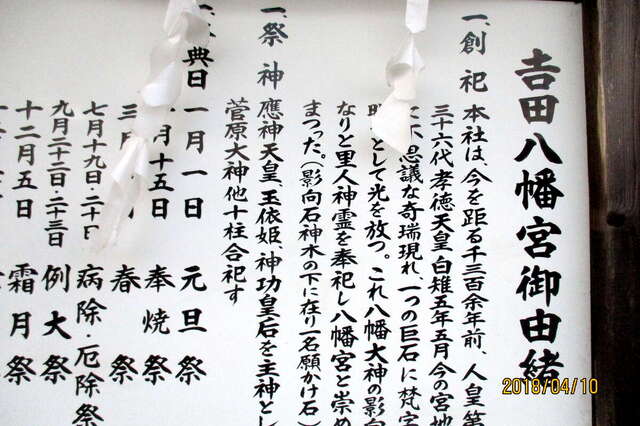 吉田八幡宮御由緒
一、創祀 本社は、今を距る千三百余年前、人皇第
三十六代孝徳天皇白雉五年五月今の宮地
不思議な奇瑞現れ、一つの巨石に梵字
として光を放つ。これ八幡大神の影向
なりと里人神霊を奉祀し八幡宮と崇め
まつった。(影向石神木の下に在り一名願かけ石)
一、祭神 應神天皇、玉依姫、神功皇后を主神とし
菅原大神他十柱合祀す
典日 一月一日 元旦祭
月十五日 奉焼祭
三月 日 春祭
七月十九日・二十日 病除・厄除祭
九月二十二日・二十三日 例大祭
十二月五日 霜月祭
2018/04/10